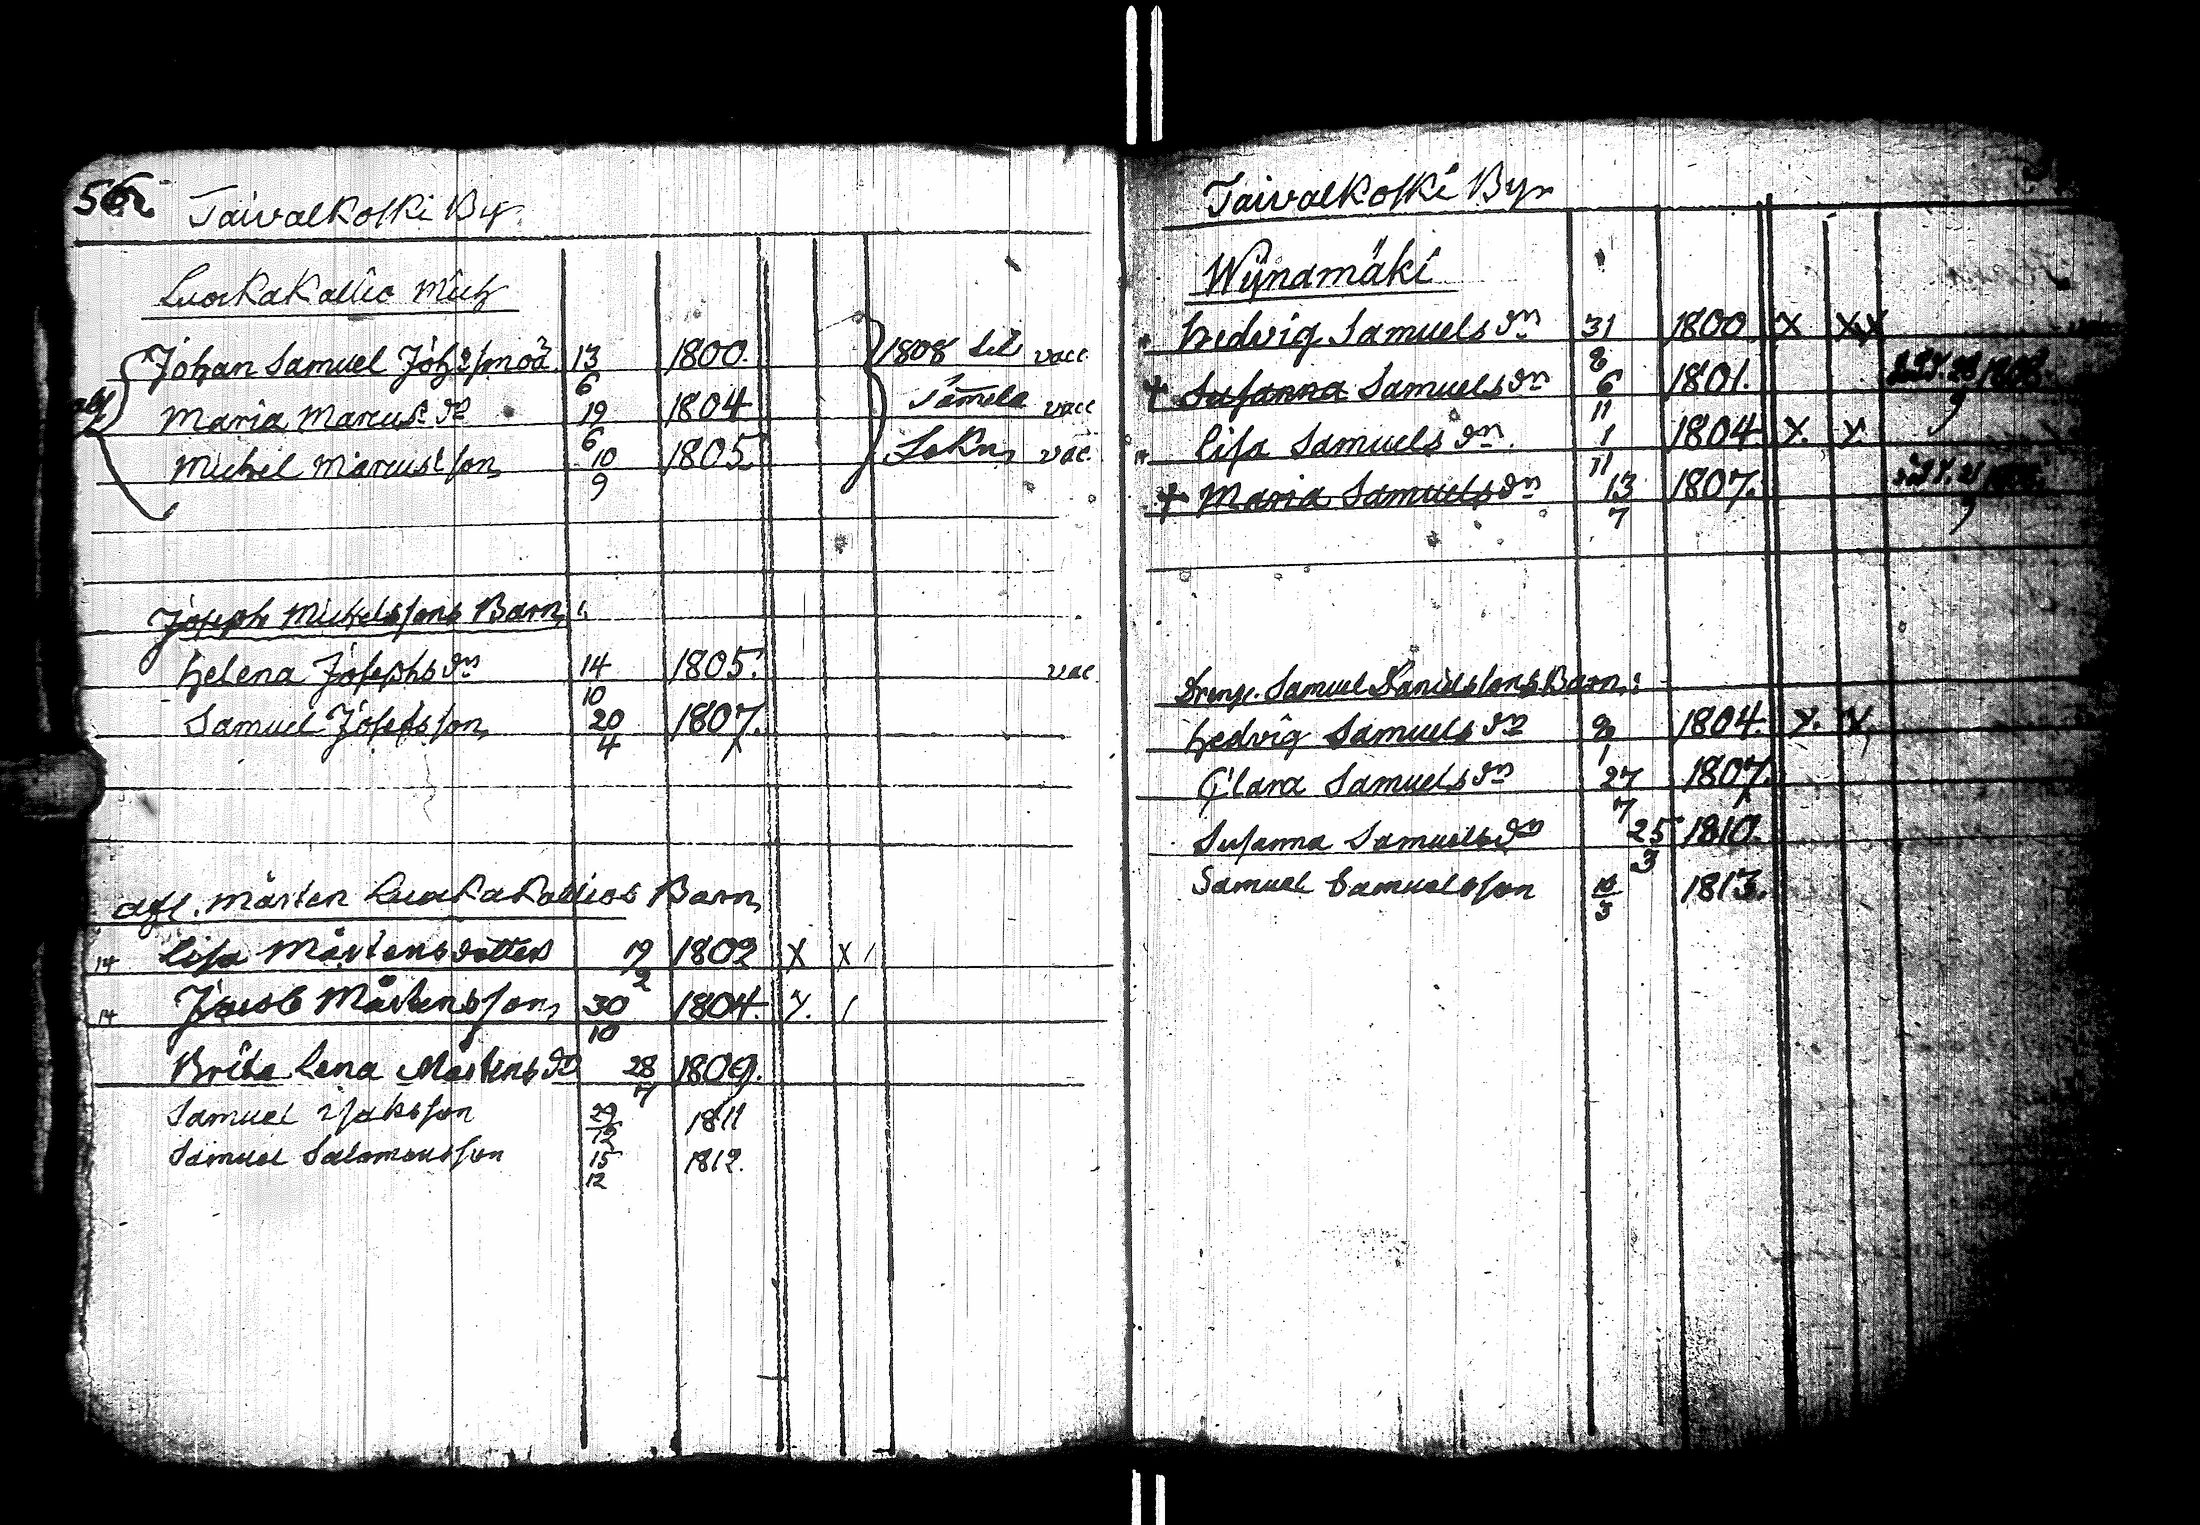 562
Taivalkoski By
Luockakallio Mich
Johan Samuel 13/6 1800. 1808 vacc
Maria Marcusd:r 19/6 1804 vacc
Michel Marcusson 10/9 1805 vac
Joseph Michelssons Barn:
Helena Josephsdr 14/10 1805. vac
Samuel Josephsson 20/4 1807.
afl. Mårten Luockakallios Barn
14 Lisa Mårtensdotter 19/2 1802 X X /
14 Jacob Mårtensson 30/10 1804. X. /
Brita Lena Mårtensdr 28/7 1809.
Samuel Isaksson 29/12 1811
Samuel Salomonsson 15/12 1812.
Taivalkoski By
Wÿnamäki
Hedvig Samuelsdr 31/8 1800 X XX
† Susanna Samuelsdr 6/11 1801.
Lisa Samuelsdr. 1/11 1804 X. X
† Maria Samuelsdr 13/7 1807.
Dreng. Samuel Danielssons Barn:
Hedvig Samuelsdr 1804. X. X.
Clara Samuelsdr 27/7 1807.
Susanna Samuelsdr 25/3 1810.
Samuel Samuelsson 10/3 1813.